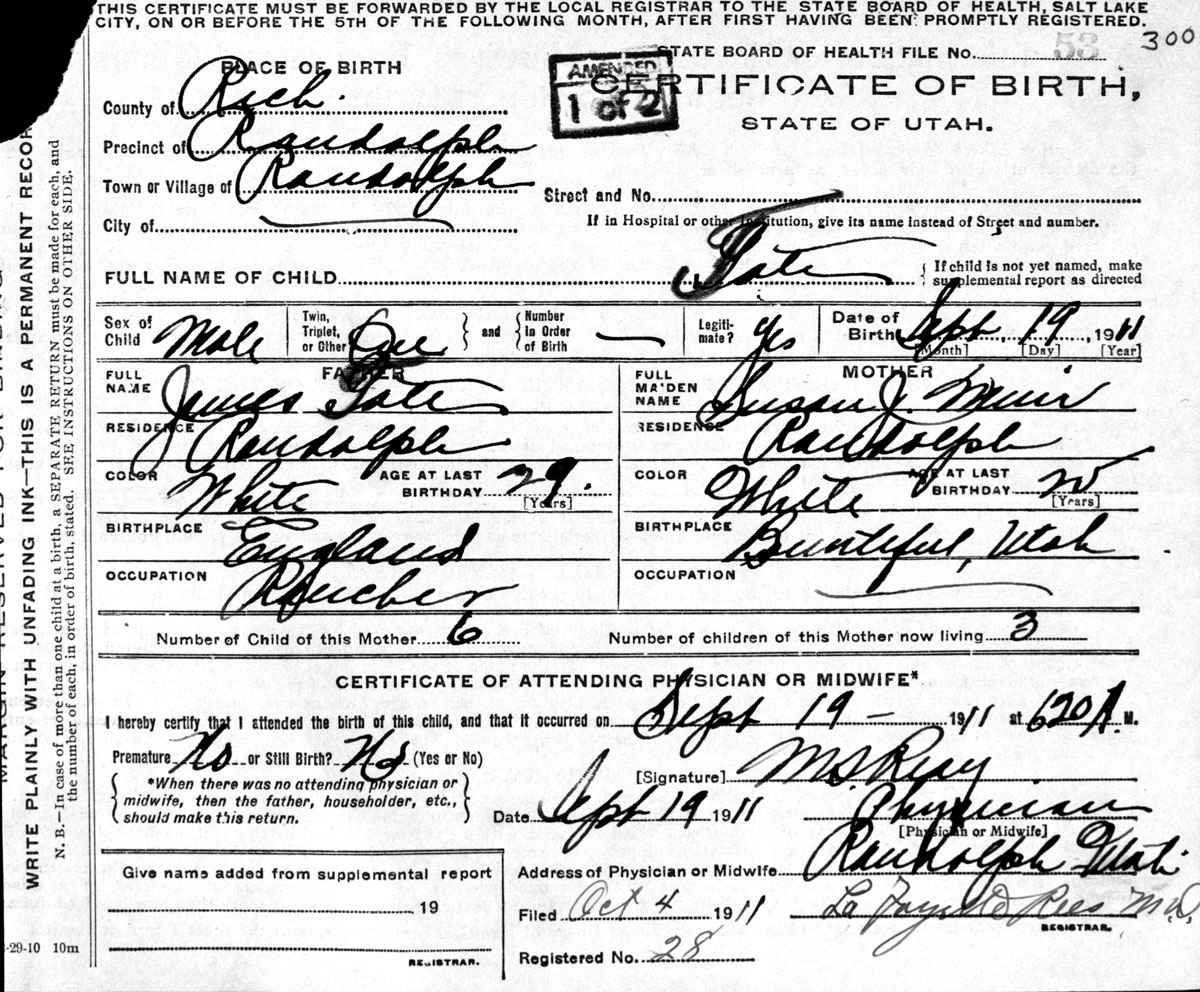 THIS CERTIFICATE MUST BE FORWARDED BY THE LOCAL REGISTRAR TO THE STATE BOARD OF HEALTH, SALT LAKE
CITY, ON OR BEFORE THE 5TH OF THE FOLLOWING MONTH, AFTER FIRST HAVING BEEN PROMPTLY REGISTERED.
STATE BOARD OF HEALTH FILE No. 53 300
PLACE OF BIRTH
AMENDED
1 of 2
CERTIFICATE OF BIRTH,
STATE OF UTAH.
County of Rich.
Precinct of Randolph
Town or Village of Randolph
Street and No.
City of
If in Hospital or other Institution, give its name instead of Street and number.
FULL NAME OF CHILD Tate
If child is not yet named, make
supplemental report as directed
Sex of Child Male
Twin, Triplet, or Other One
and
Number In Order of Birth —
Legiti-mate? Yes
Date of Birth Sept, 19, 1911
[Month] [Day] [Year]
FATHER
FULL NAME James Tate
RESIDENCE Randolph
COLOR White AGE AT LAST BIRTHDAY 29. [Years]
BIRTHPLACE England
OCCUPATION Rancher
MOTHER
FULL MAIDEN NAME Susan J. Muir
RESIDENCE Randolph
COLOR White AGE AT LAST BIRTHDAY [Years]
BIRTHPLACE Bountiful, Utah
OCCUPATION
Number of Child of this Mother 6
Number of children of this Mother now living 3
CERTIFICATE OF ATTENDING PHYSICIAN OR MIDWIFE*
I hereby certify that I attended the birth of this child, and that it occurred on Sept 19 - 1911 at 620 A. M.
Premature? No or Still Birth? No (Yes or No)
*When there was no attending physician or
midwife, then the father, householder, etc.,
should make this return.
[Signature] M.S. Reay
Date Sept 19 1911 Physician
[Physician or Midwife]
Address of Physician or Midwife Randolph Utah
Give name added from supplemental report
19
REGISTRAR.
Filed Oct 4 1911 La Fayette Rees M.D.
REGISTRAR.
Registered No. 28
-29-10 10m
WRITE PLAINLY WITH UNFADING INK—THIS IS A PERMANENT RECOR
N. B.—In case of more than one child at a birth, a SEPARATE RETURN must be made for each, and
the number of each, in order of birth, stated. SEE INSTRUCTIONS ON OTHER SIDE.